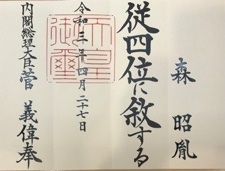 森 昭胤
従四位に敘する
令和三年四月二十七日
天皇御璽
内閣総理大臣 菅 義偉奉